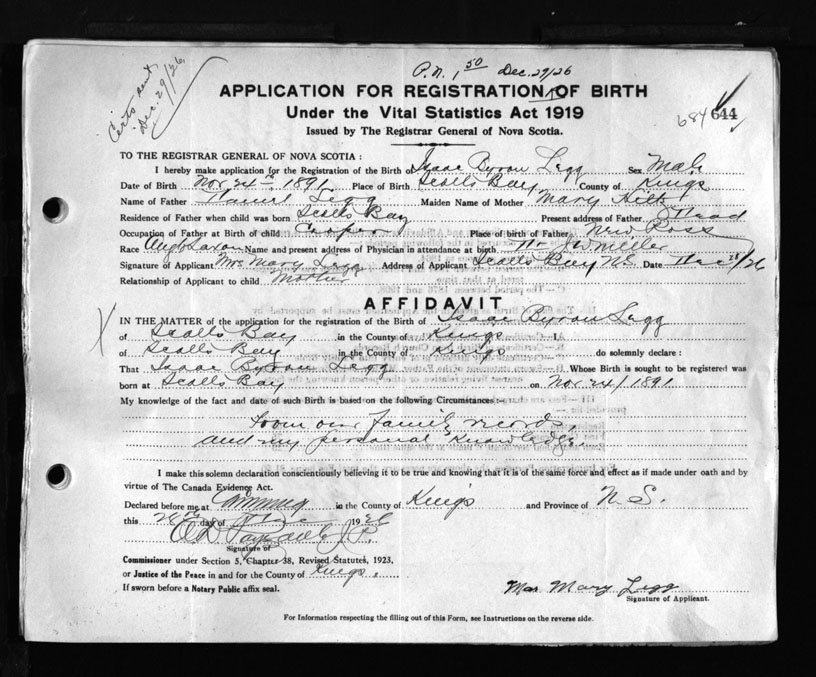 Certs sent
Dec. 29/26
P.N. 1 50 Dec. 29/26
APPLICATION FOR REGISTRATION OF BIRTH
684 644
Under the Vital Statistics Act 1919
Issued by The Registrar General of Nova Scotia.
TO THE REGISTRAR GENERAL OF NOVA SCOTIA :
I hereby make application for the Registration of the Birth of Isaac Byron Legg Sex Male
Date of Birth Nov 24th 1891 Place of Birth Scotts Bay County of Kings
Name of Father Daniel Legg Maiden Name of Mother Mary Hilts
Residence of Father when child was born Scotts Bay Present address of Father Dead
Occupation of Father at Birth of child Cooper Place of birth of Father New Ross
Race Anglo Saxon Name and present address of Physician in attendance at birth Dr J W Miller
Signature of Applicant Mrs Mary Legg Address of Applicant Scotts Bay NS. Date Dec 28/26
Relationship of Applicant to child Mother
AFFIDAVIT
X
IN THE MATTER of the application for the registration of the Birth of Isaac Byron Legg
of Scotts Bay in the County of Kings I,
of Scotts Bay in the County of Kings do solemnly declare :
That Isaac Byron Legg Whose Birth is sought to be registered was
born at Scotts Bay on Nov 24/1891
My knowledge of the fact and date of such Birth is based on the following Circumstances :-
from our family records,
and my personal knowledge.
I make this solemn declaration conscientiously believing it to be true and knowing that it is of the same force and effect as if made under oath and by
virtue of The Canada Evidence Act.
Declared before me at Canning in the County of King's and Province of N. S.
this 28th day of Dec 1926
J.P.
Signature of
Commissioner under Section 5, Chapter 38, Revised Statutes, 1923,
or Justice of the Peace in and for the County of Kings.
If sworn before a Notary Public affix seal.
Mrs Mary Legg
Signature of Applicant.
For Information respecting the filling out of this Form, see Instructions on the reverse side.